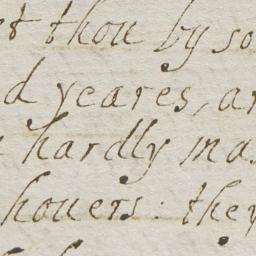 thou by so
d yeares, ar
hardly ma
houers: they